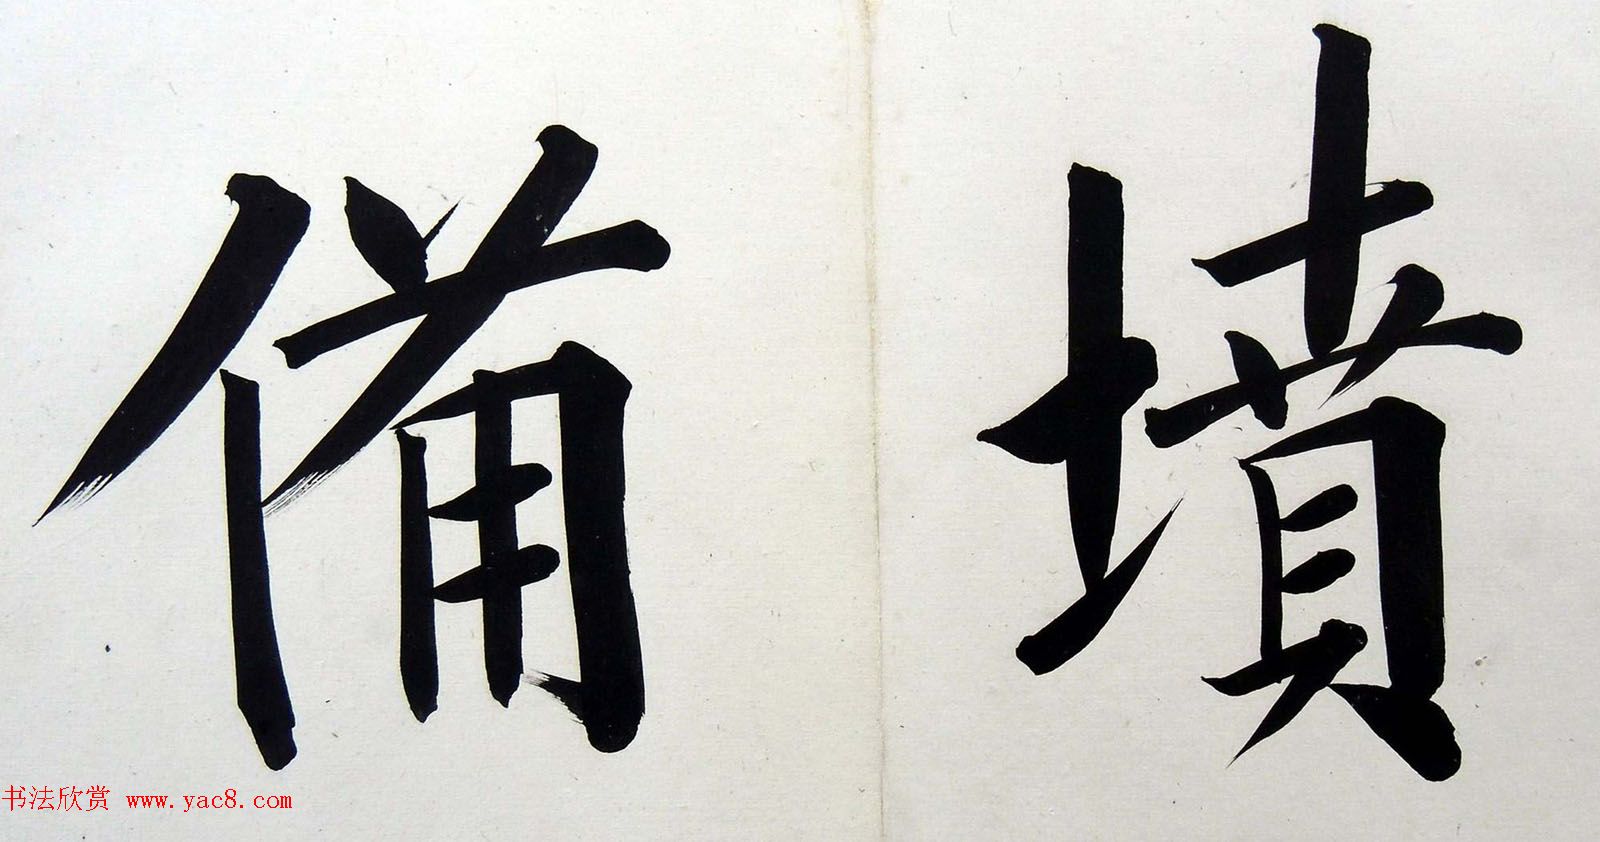 墳
備
书法欣赏 www.yac8.com